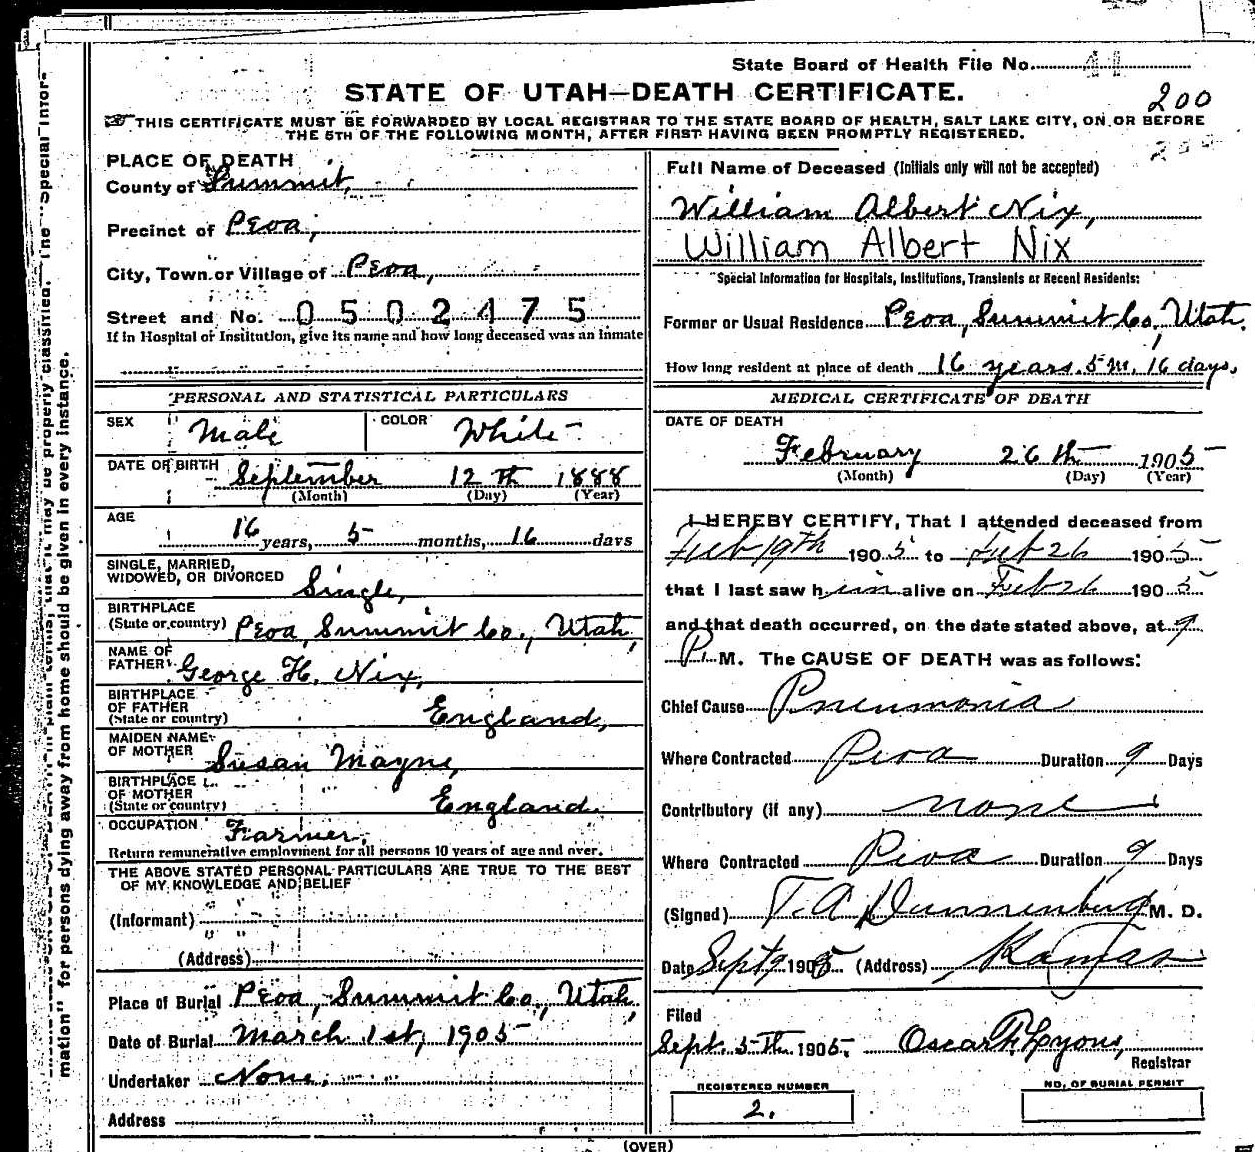 State Board of Health File No. 41
STATE OF UTAH—DEATH CERTIFICATE.
200
THIS CERTIFICATE MUST BE FORWARDED BY LOCAL REGISTRAR TO THE STATE BOARD OF HEALTH, SALT LAKE CITY, ON OR BEFORE
THE 5TH OF THE FOLLOWING MONTH, AFTER FIRST HAVING BEEN PROMPTLY REGISTERED.
PLACE OF DEATH
County of Summit,
Precinct of Peoa,
City, Town or Village of Peoa,
Street and No. 0502475
If in Hospital or Institution, give its name and how long deceased was an inmate
PERSONAL AND STATISTICAL PARTICULARS
SEX Male COLOR White
DATE OF BIRTH September 12th 1888
(Month) (Day) (Year)
AGE
16 years, 5 months, 16 days
SINGLE, MARRIED,
WIDOWED, OR DIVORCED Single,
BIRTHPLACE
(State or country) Peoa, Summit Co., Utah,
NAME OF
FATHER George H. Nix,
BIRTHPLACE
OF FATHER
(State or country) England,
MAIDEN NAME
OF MOTHER Susan Mayne,
BIRTHPLACE
OF MOTHER
(State or country) England.
OCCUPATION Farmer,
Return remunerative employment for all persons 10 years of age and over.
THE ABOVE STATED PERSONAL PARTICULARS ARE TRUE TO THE BEST
OF MY KNOWLEDGE AND BELIEF
(Informant)
(Address)
Place of Burial Peoa, Summit Co., Utah,
Date of Burial March 1st, 1905
Undertaker None,
Address
Full Name of Deceased (Initials only will not be accepted)
William Albert Nix,
William Albert Nix
Special Information for Hospitals, Institutions, Transients or Recent Residents:
Former or Usual Residence Peoa, Summit Co., Utah.
How long resident at place of death 16 years. 5 m. 16 days,
MEDICAL CERTIFICATE OF DEATH
DATE OF DEATH
February 26th 1905
(Month) (Day) (Year)
I HEREBY CERTIFY, That I attended deceased from
Feb 19th 1905 to Feb 26 1905
that I last saw him alive on Feb 26 1905
and that death occurred, on the date stated above, at 9
P. M. The CAUSE OF DEATH was as follows:
Chief Cause Pneumonia
Where Contracted Peoa Duration 9 Days
Contributory (if any) none
Where Contracted Peoa Duration 9 Days
(Signed) T. A. Dannenburg M. D.
Date Sept 9 1905 (Address) Kamas
Filed
Sept. 5th 1905. Oscar F. Lyons,
Registrar
REGISTERED NUMBER
2.
NO. OF BURIAL PERMIT
(OVER)
mation" for persons dying away from home should be given in every instance.